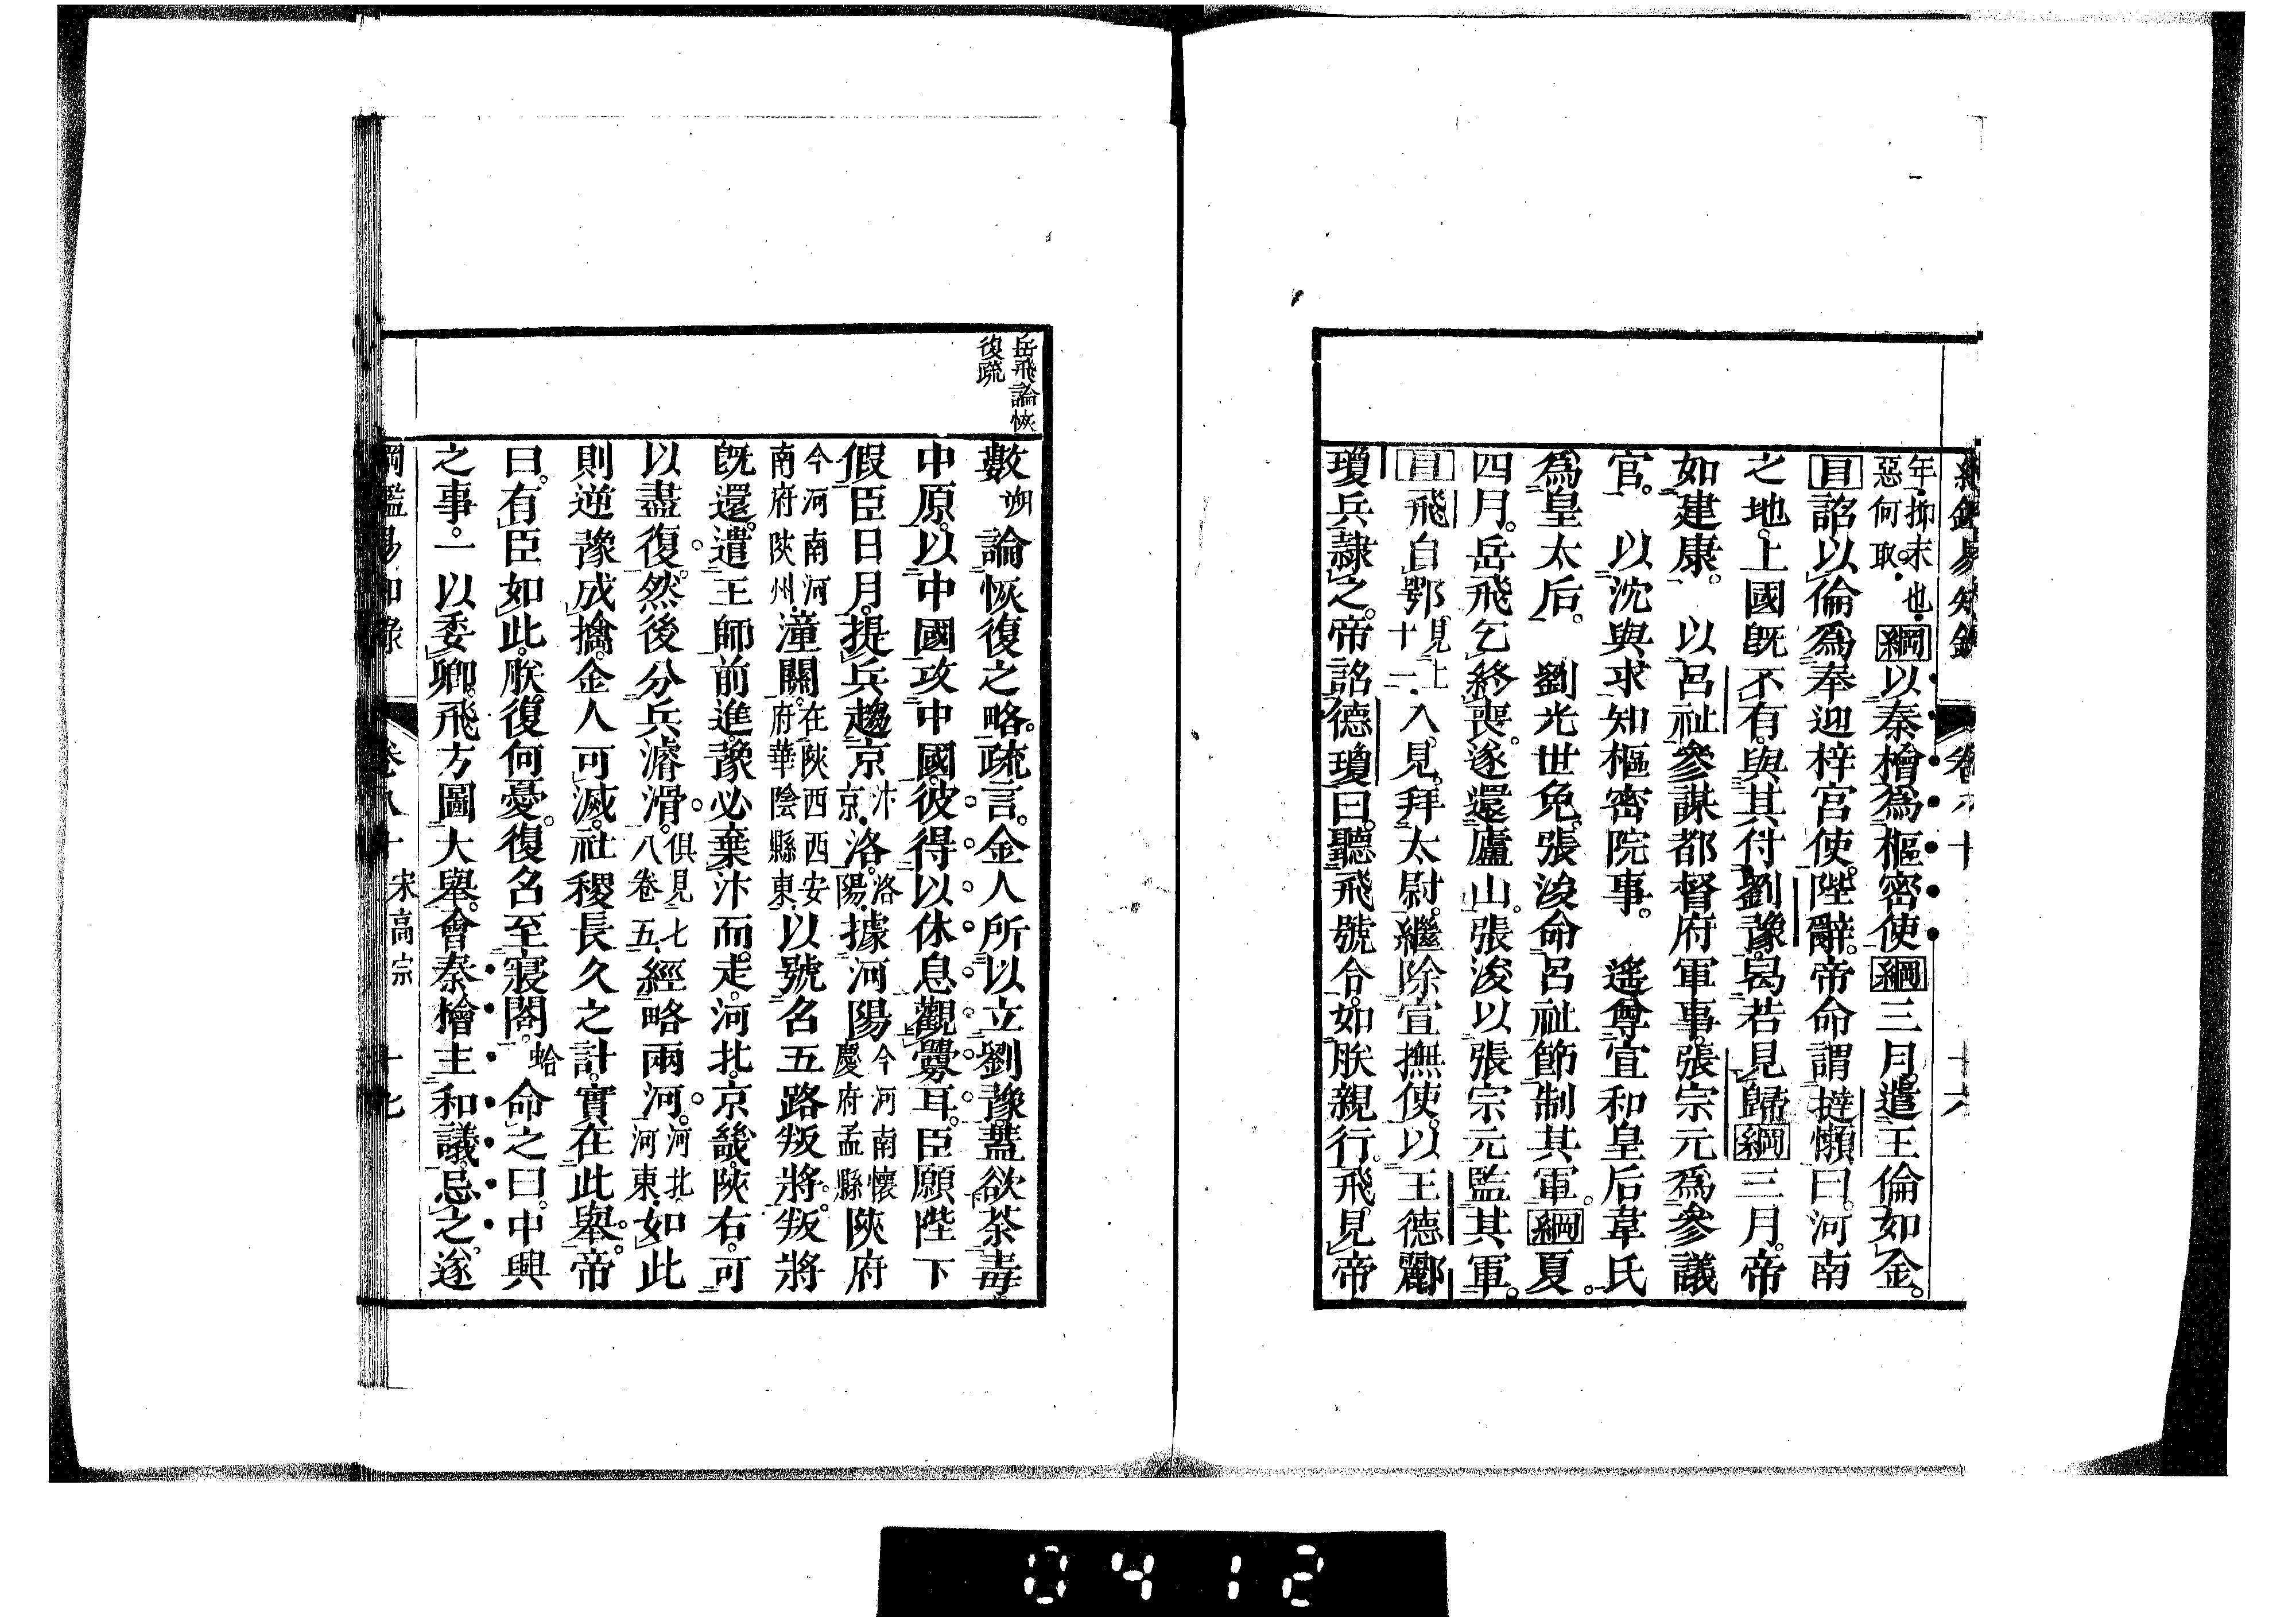 綱鑑易知錄 卷八十 十六
年抑末也
惡何取
綱以秦檜爲樞密使綱三月。遣王倫如金。
目詔以倫爲奉迎梓宮使。陛辭。帝命謂撻懶曰。河南
之地。上國既不有。與其付劉豫。曷若見歸綱三月。帝
如建康。 以呂祉參謀都督府軍事。張宗元爲參議
官。 以沈與求知樞密院事。 遙尊宣和皇后韋氏
爲皇太后。 劉光世免。張浚命呂祉節制其軍。綱夏。
四月。岳飛乞終喪。遂還廬山。張浚以張宗元監其軍。
目飛自鄂見上十一入見。拜太尉。繼除宣撫使。以王德酈
瓊兵隷之。帝詔德瓊曰。聽飛號令。如朕親行。飛見帝
岳飛論恢
復疏
數朔論恢復之略。疏言。金人所以立劉豫。蓋欲荼毒
中原。以中國攻中國。彼得以休息觀釁耳。臣願陛下
假臣日月。提兵趨京汴京洛。洛陽據河陽今河南懷慶府孟縣陝府
今河南河南府陝州潼關。在陝西西安府華陰縣東以號名五路叛將。叛將
既還。遣王師前進。豫必棄汴而走。河北。京畿。陝右。可
以盡復。然後分兵濬滑。俱見七八卷五經略兩河。河北河東如此
則逆豫成擒。金人可滅。社稷長久之計。實在此舉。帝
曰。有臣如此。朕復何憂。復名至寢閤。蛤命之曰。中興
之事。一以委卿。飛方圖大舉。會秦檜主和議。忌之。遂
綱鑑易知錄 卷八十 宋高宗 十七
0412